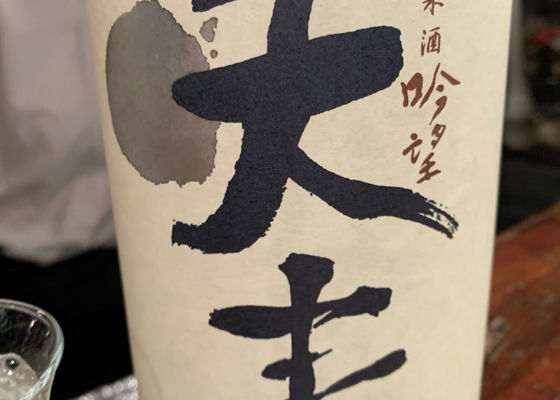 米酒 吟望
天青